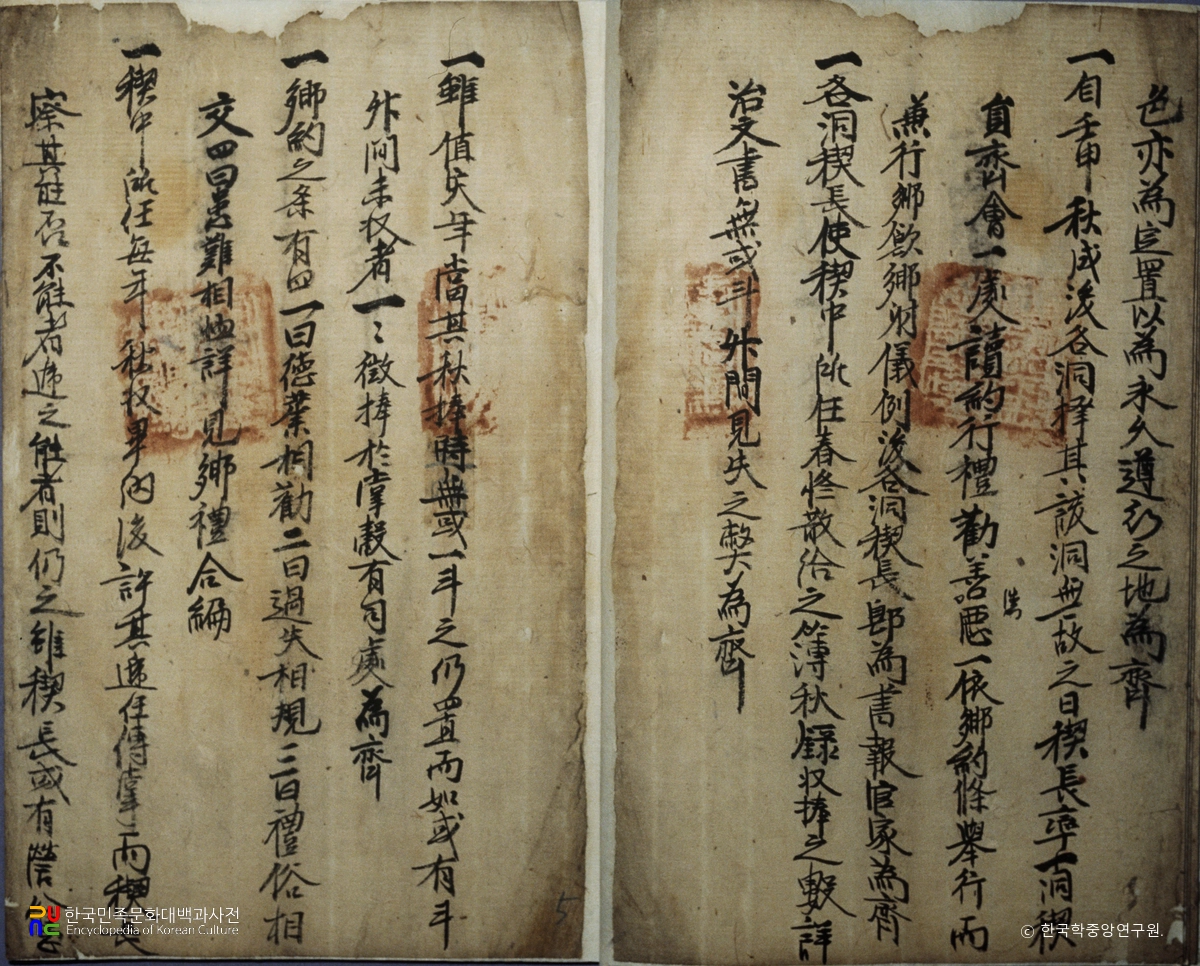 色亦為定置以為永久遵行之地為齊
一自壬申秋成後各洞擇其該洞無故之日稧長率一洞稧
員齊會一處讀約行禮勸善懲惡一依鄉約條舉行而
兼行鄉飲鄉射儀例後各洞稧長郎為書報官家為齊
一各洞稧長使稧中所任春修散給之簿秋錄收捧之數詳
治文書無或斗外間見失之弊為齊
一雖值灾年當其秋捧時無或一斗之仍置而如或有斗
外間未收者一〻徵捧於掌穀有司處為齊
一鄉約之条有四一曰德業相勸二曰過失相規三曰禮俗相
交四曰患難相恤詳見鄉禮合編
一稧中所任每年秋收畢納後許其遞任傳掌而稧長
察其能否不能者遞之能者則仍之雖稧長或有營
5
한국민족문화대백과사전
Encyclopedia of Korean Culture
© 한국학중앙연구원.